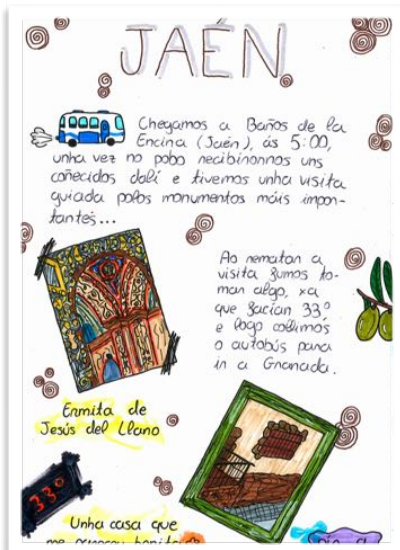 JAÉN
Chegamos a Baños de la
Encina (Jaén), ás 5:00,
unha vez no pobo recibíronnos uns
coñecidos dalí e tivemos unha visita
guiada polos monumentos máis impor-
tantes...
Ao rematar a
visita fumos to-
mar algo, xa
que facían 33º
e logo collimos
o autobús para
ir a Granada.
Ermita de
Jesús del Llano
33º
Unha casa que
me pareceu bonita